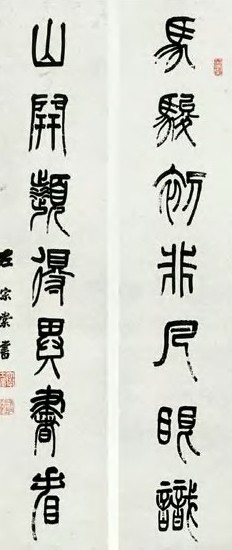 馬駿初非凡眼識
山開類得異書看
左宗棠書